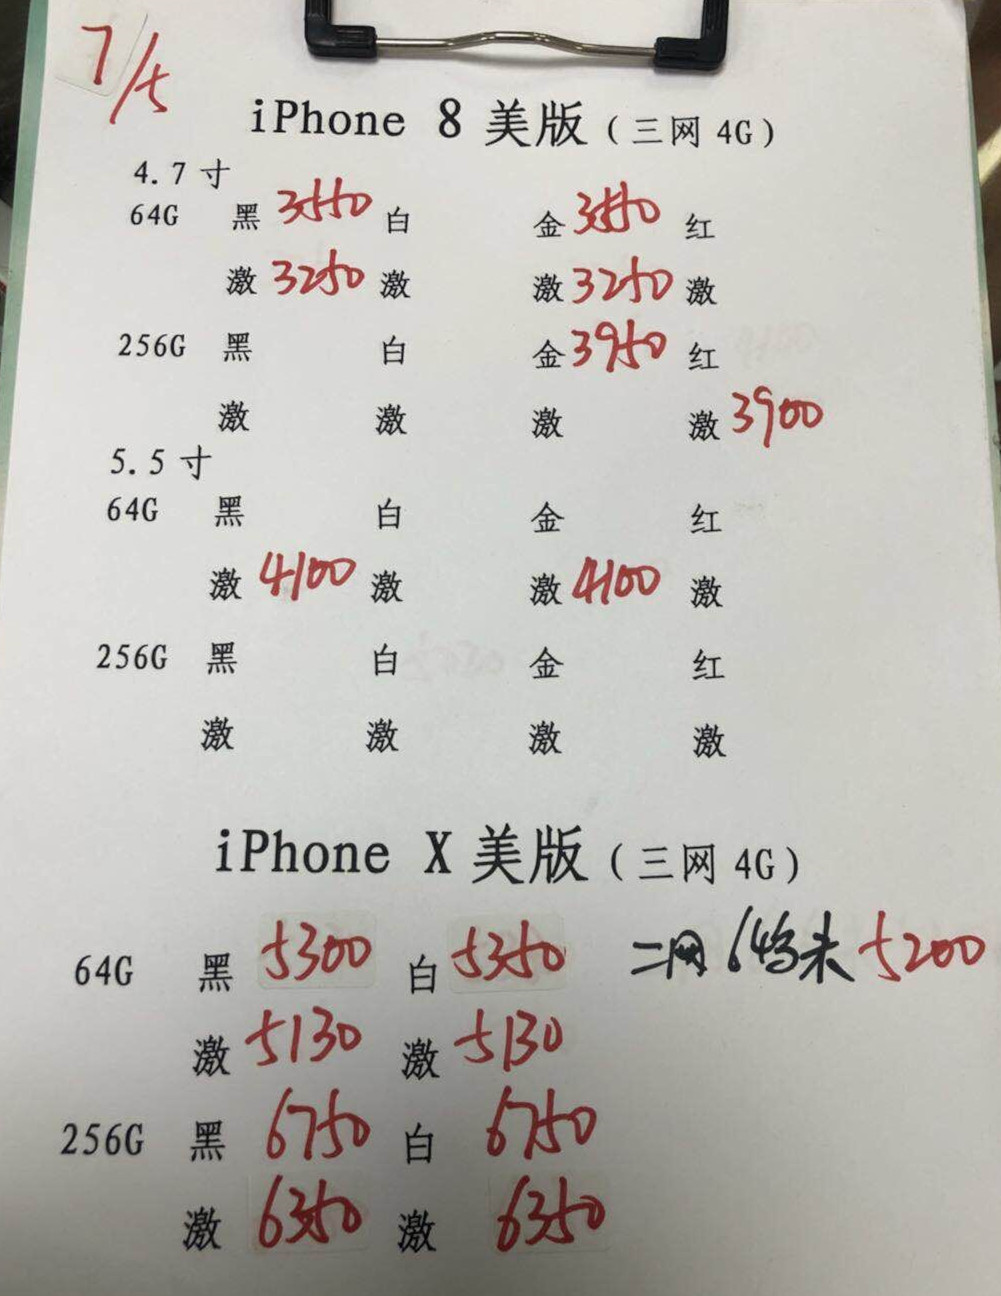 7/5
iPhone 8 美版(三网 4G)
4.7 寸
64G 黑 3550 白 金 3550 红
激 3250 激 激 3250 激
256G 黑 白 金 3950 红
激 激 激 激 3900
5.5 寸
64G 黑 白 金 红
激 4100 激 激 4100 激
256G 黑 白 金 红
激 激 激 激
iPhone X 美版(三网 4G)
64G 黑 5300 白 5350 二网 64 未 5200
激 5130 激 5130
256G 黑 6750 白 6750
激 6350 激 6350